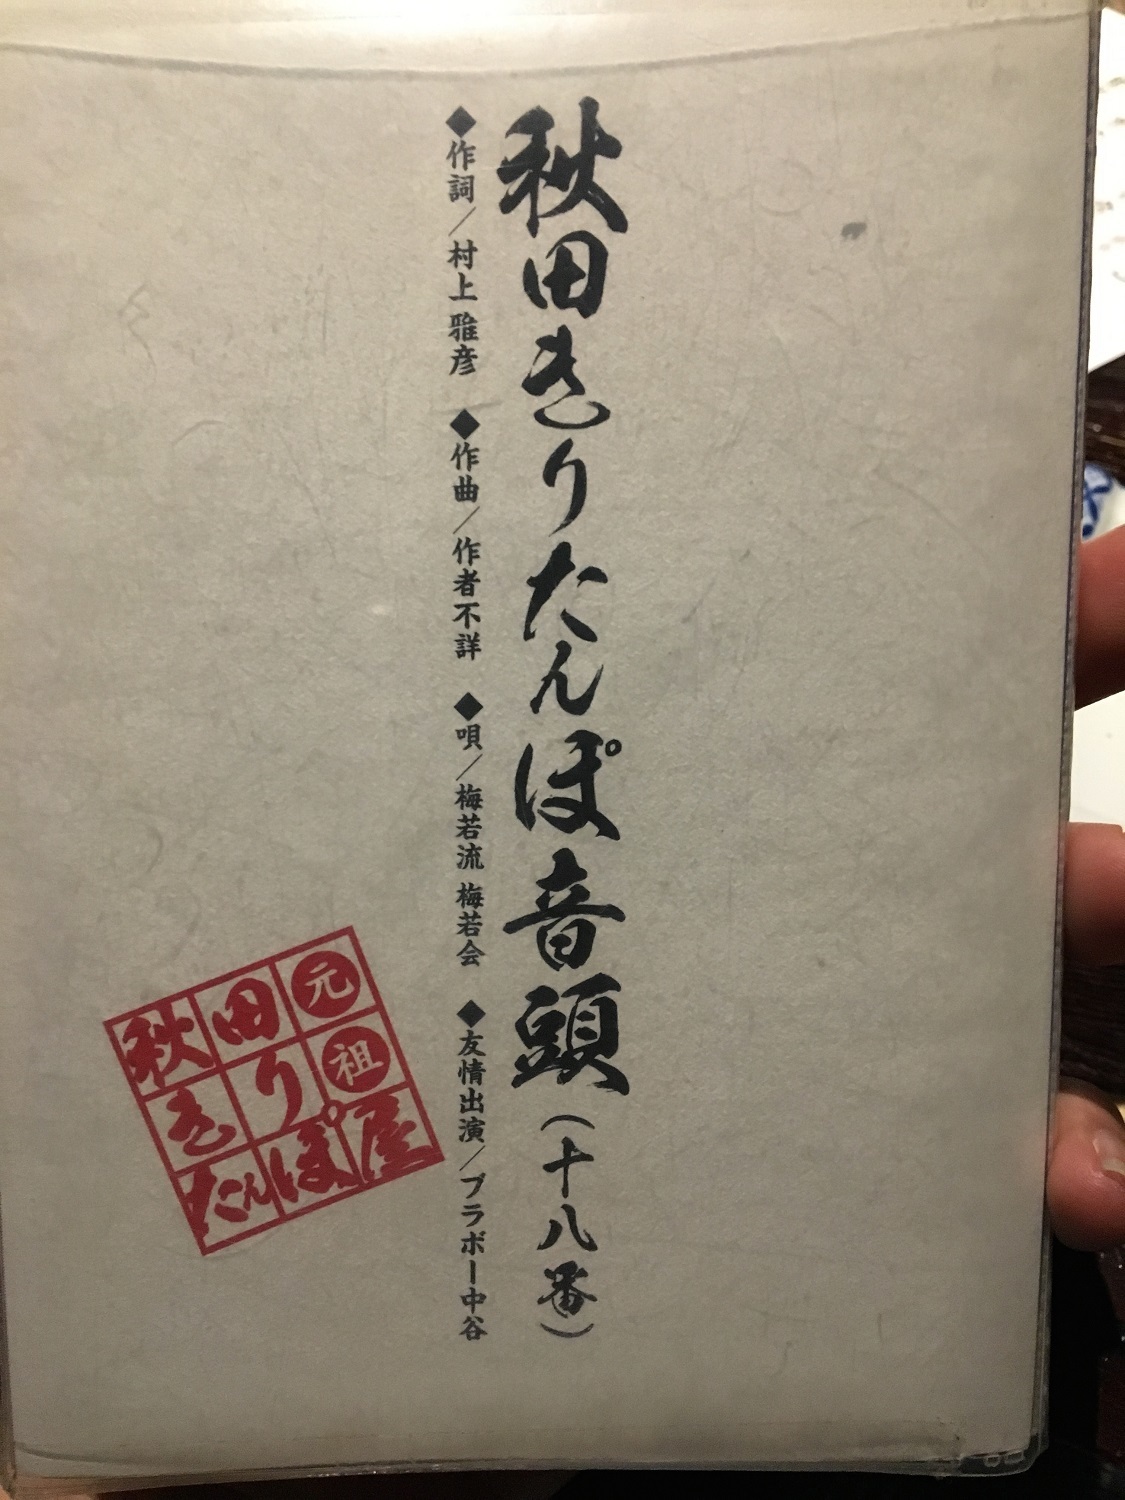 秋田きりたんぽ音頭（十八番）
◆作詞／村上 雅彦 ◆作曲／作者不詳 ◆唄／梅若流 梅若会 ◆友情出演／ブラボー中谷
元祖
秋田
きり
たんぽ屋